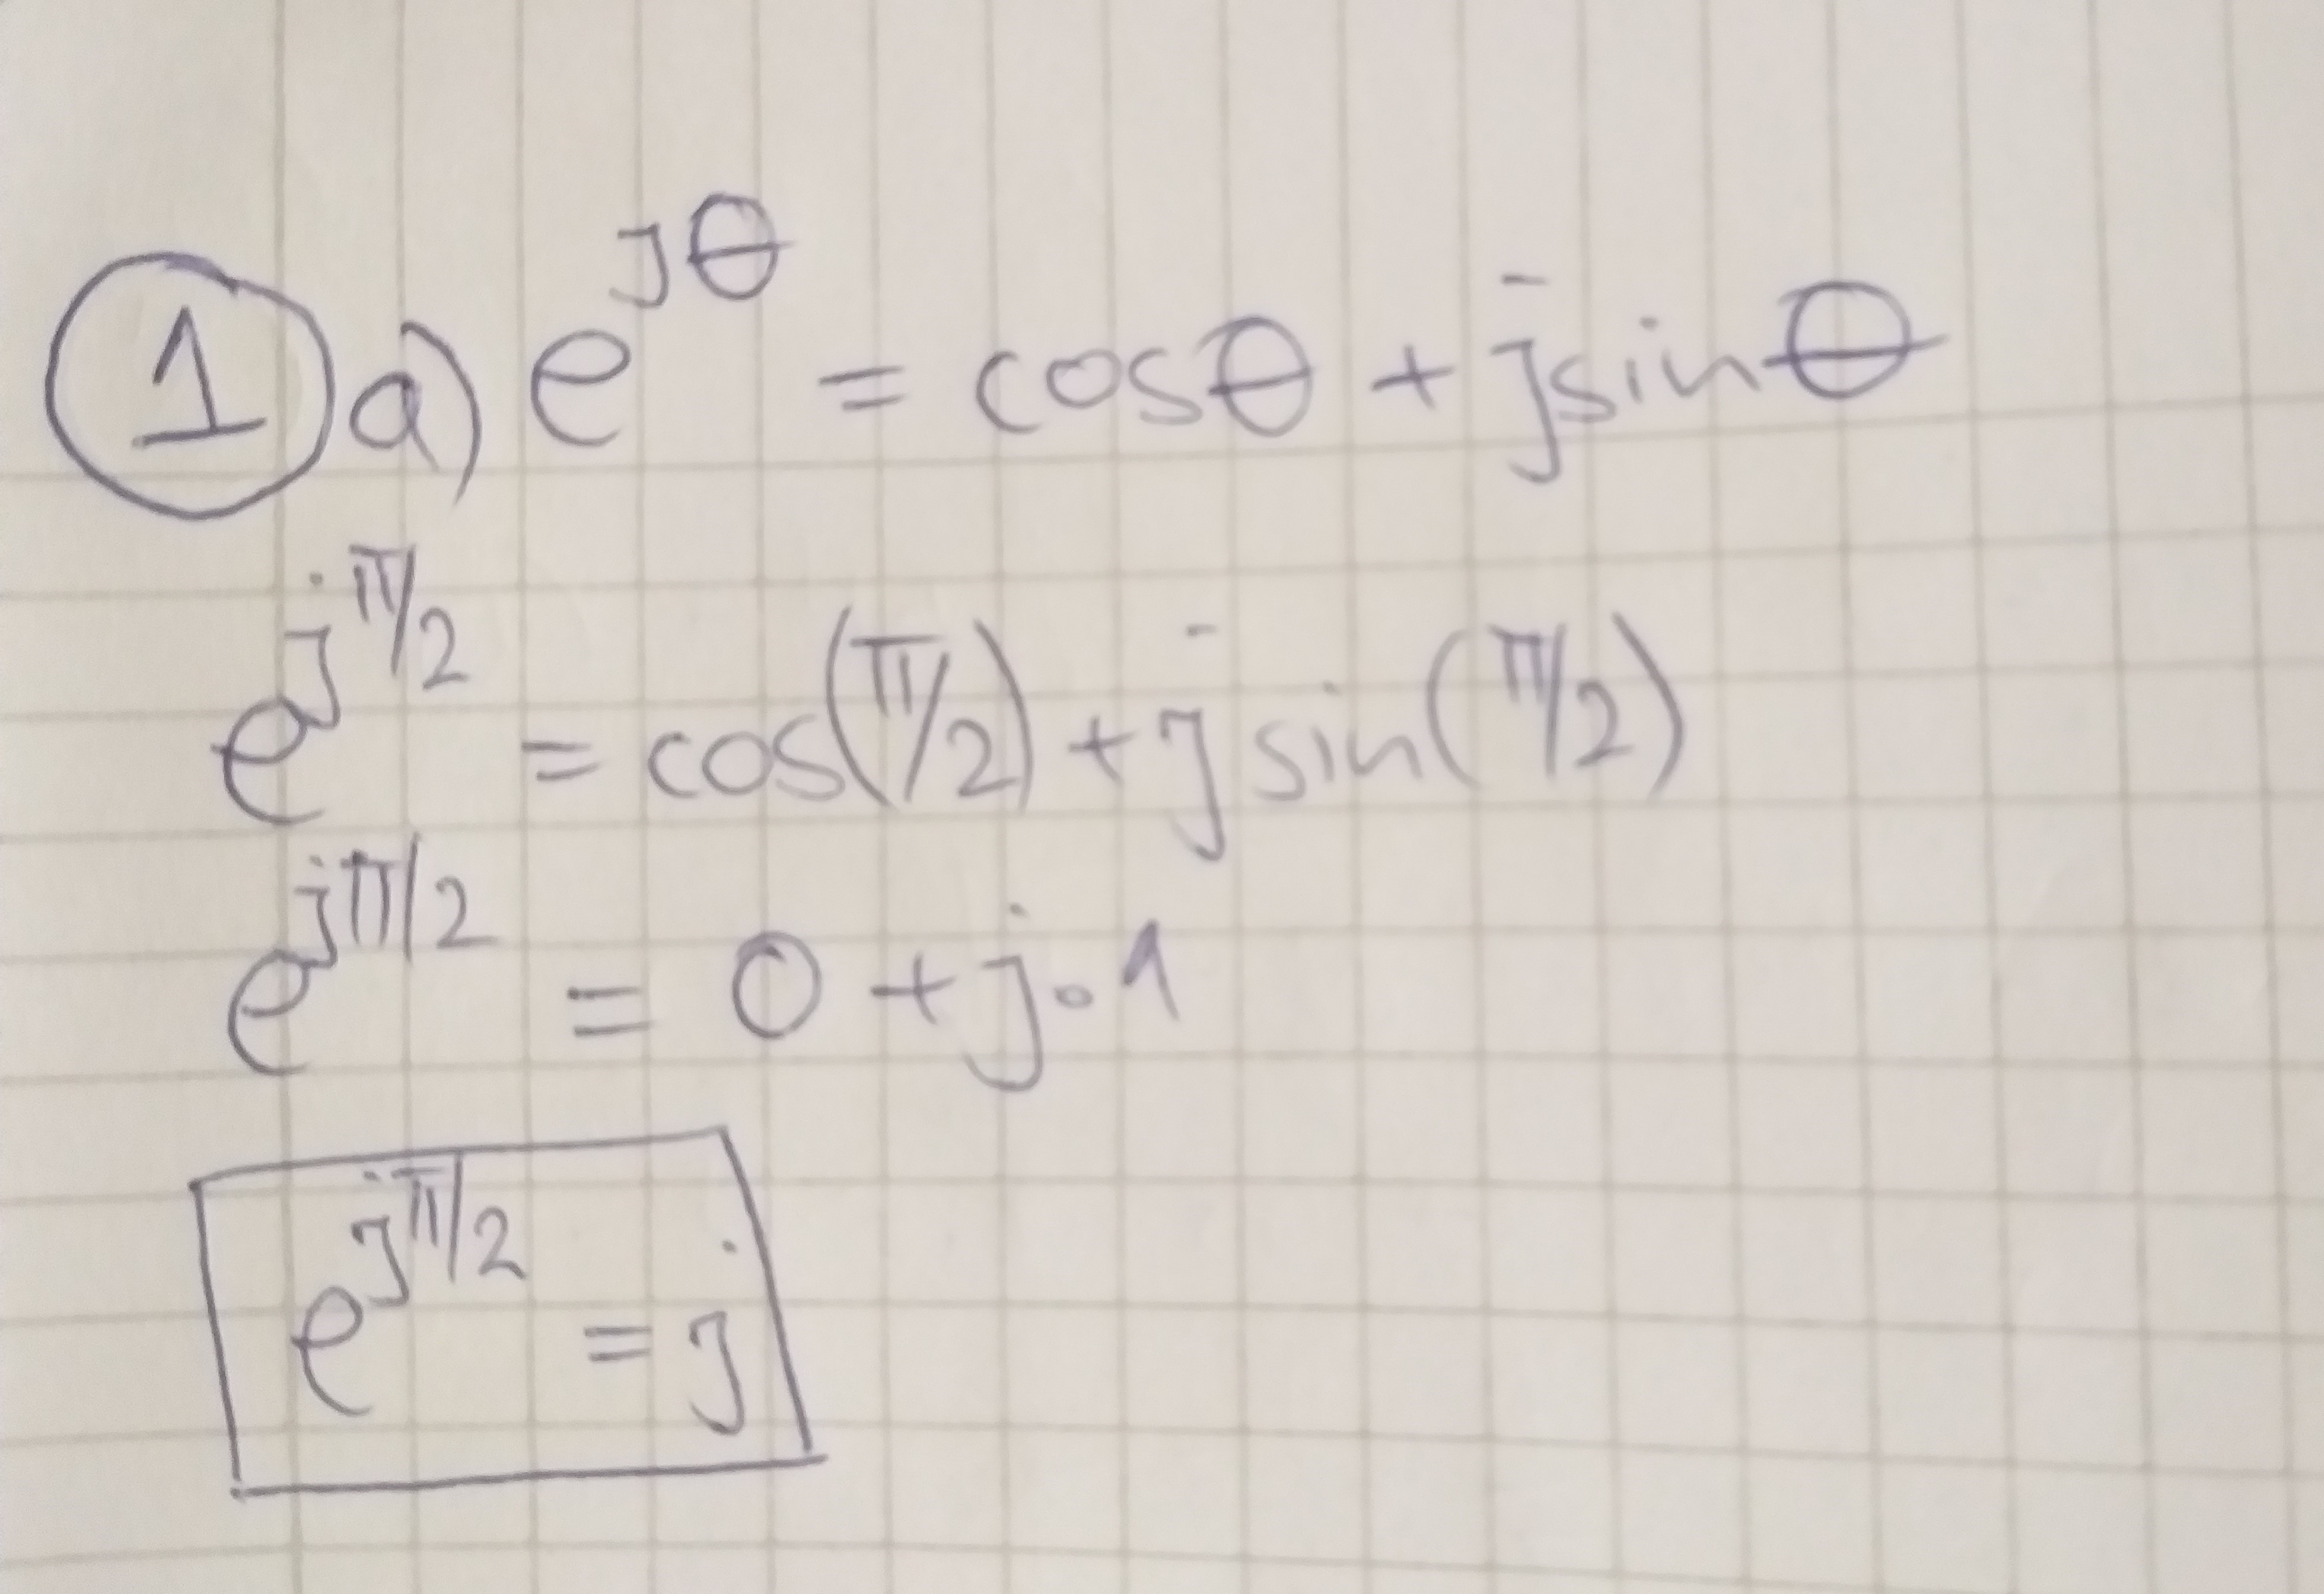 1 a) e^{jθ} = cosθ + jsinθ
e^{jπ/2} = cos(π/2) + j sin(π/2)
e^{jπ/2} = 0 + j·1
e^{jπ/2} = j